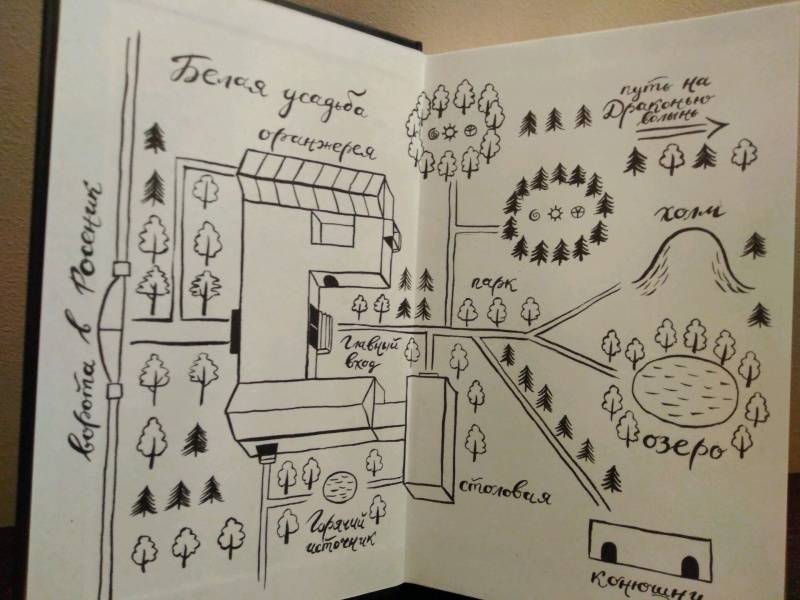 Белая усадьба
оранжерея
ворота в Россник
Главный
вход
Горячий
источник
путь на
Драконью
волынь
холм
парк
озеро
столовая
конюшни